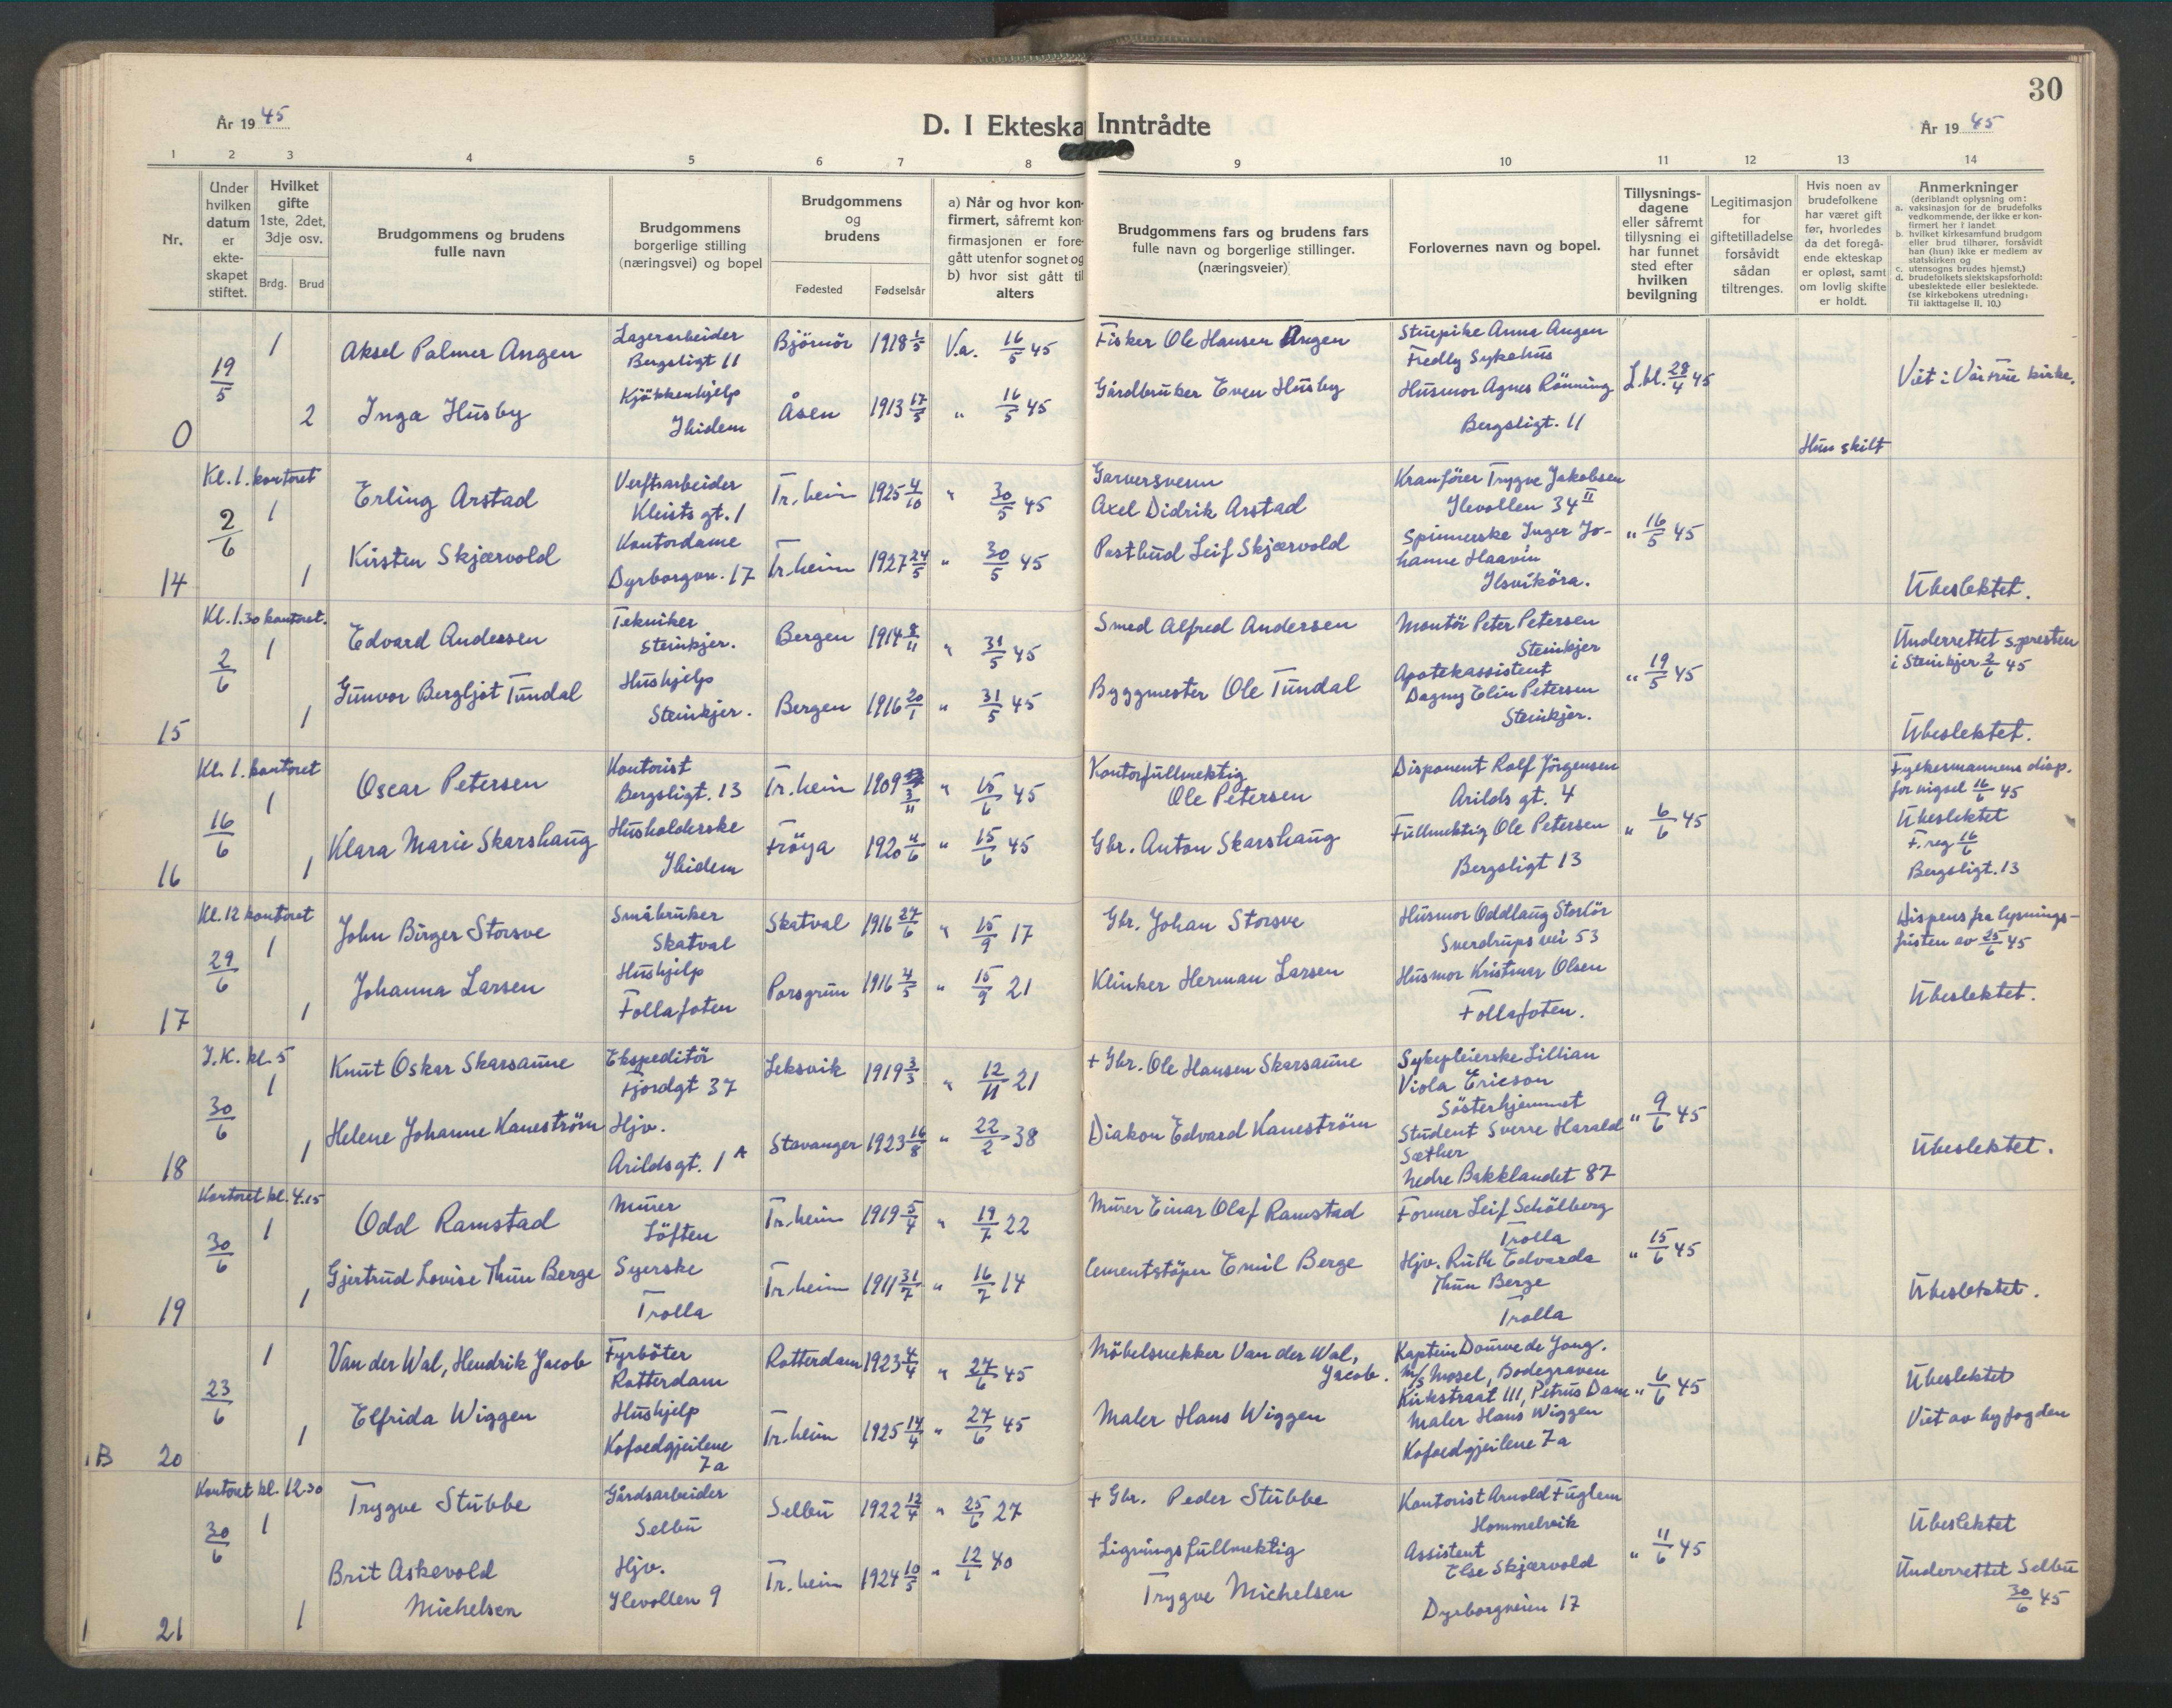 30
År 1945
D. I Ekteska Inntrådte
År 1945
1 2 3 4 5 6 7 8 9 10 11 12 13 14
Nr.
Under
hvilken
datum
er
ekte-
skapet
stiftet.
Hvilket
gifte
1ste, 2det,
3dje osv.
Brdg. Brud
Brudgommens og brudens
fulle navn
Brudgommens
borgerlige stilling
(næringsvei) og bopel
Brudgommens
og
brudens
Fødested Fødselsår
a) Når og hvor kon-
firmert, såfremt kon-
firmasjonen er fore-
gått utenfor sognet og
b) hvor sist gått til
alters
Brudgommens fars og brudens fars
fulle navn og borgerlige stillinger.
(næringsveier)
Forlovernes navn og bopel.
Tillysnings-
dagene
eller såfremt
tillysning ei
har funnet
sted efter
hvilken
bevilgning
Legitimasjon
for
giftetilladelse
forsåvidt
sådan
tiltrenges.
Hvis noen av
brudefolkene
har været gift
før, hvorledes
da det foregå-
ende ekteskap
er opløst, samt
om lovlig skifte
er holdt.
Anmerkninger
(deriblandt oplysning om:
a. vaksinasjon for de brudefolks
vedkommende, der ikke er kon-
firmert her i landet
b. hvilket kirkesamfund brudgom
eller brud tilhører, forsåvidt
han (hun) ikke er medlem av
statskirken og
c. utensogns brudes hjemst.)
d. brudefolkets slektskapsforhold:
ubeslektede eller beslektede.
(se kirkebokens utredning:
Til iakttagelse II, 10.)
0
19/5
1
Aksel Palmer Angen
Lagerarbeider
Bergsligt 11
Björnör
1918 1/5
V.a. 16/5 45
Fisker Ole Hansen Angen
Stuepike Anna Angen
Fredly Sykehus
L.bl. 28/4 45
Viet i Vår Frue kirke.
2
Inga Husby
Kjökkenhjelp
Ibidem
Åsen
1913 17/5
" 16/5 45
Gårdbruker Even Husby
Husmor Agnes Rönning
Bergsligt. 11
Hun skilt
14
Kl. 1. kontoret
2/6
1
Erling Arstad
Verftsarbeider
Kleists gt. 1
Tr.heim
1925 4/10
" 30/5 45
Garversvenn
Axel Didrik Arstad
Kranförer Trygve Jakobsen
Ilevollen 34 II
" 16/5 45
1
Kirsten Skjærvold
Kontordame
Dyrborgvn. 17
Tr.heim
1927 24/5
" 30/5 45
Postbud Leif Skjærvold
Spinnerske Inger Jo-
hanne Haavin
Ilsviköra.
Ubeslektet.
15
Kl. 1.30 kontoret.
2/6
1
Edvard Andersen
Tekniker
Steinkjer.
Bergen
1914 8/11
" 31/5 45
Smed Alfred Andersen
Montör Peter Petersen
Steinkjer
" 19/5 45
Underrettet s.presten
i Steinkjer 2/6 45
1
Gunvor Bergljot Tundal
Hushjelp
Steinkjer.
Bergen
1916 20/1
" 31/5 45
Byggmester Ole Tundal
Apotekassistent
Dagny Elin Petersen
Steinkjer.
Ubeslektet.
16
Kl. 1. kontoret
16/6
1
Oscar Petersen
Kontorist
Bergsligt. 13
Tr.heim
1909 3/11
" 15/6 45
Kontorfullmektig
Ole Petersen
Disponent Rolf Jörgensen
Arilds gt. 4
" 6/6 45
Fylkesmannens disp.
for vigsel 16/6 45
Ubeslektet
F.reg 16/6
Bergsligt. 13
1
Klara Marie Skarshaug
Husholderske
Ibidem
Fröya
1920 4/6
" 15/6 45
Gbr. Anton Skarshaug
Fullmektig Ole Petersen
Bergsligt 13
17
Kl. 12 kontoret
29/6
1
John Birger Storsve
Småbruker
Skatval
Skatval
1916 27/6
" 15/9 17
Gbr. Johan Storsve
Husmor Oddlaug Storlör
Sverdrups vei 53
Dispens fra lysnings-
fristen av 25/6 45
1
Johanna Larsen
Hushjelp
Follafoten
Porsgrun
1916 4/5
" 15/9 21
Klinker Herman Larsen
Husmor Kristmar Olsen
Follafoten.
Ubeslektet.
18
I.K. kl. 5
30/6
1
Knut Oskar Skarsaune
Ekspeditör
Fjordgt 37
Leksvik
1919 3/3
" 12/11 21
+ Gbr. Ole Hansen Skarsaune
Sykepleierske Lillian
Viola Ericson
Sösterhjemmet
" 9/6 45
1
Helene Johanne Kaneström
Hjv.
Arildsgt. 1 A
Stavanger
1923 16/8
" 22/2 38
Diakon Edvard Kaneström
Student Sverre Harald
Sæther
Nedre Bakklandet 87
Ubeslektet.
19
Kontoret kl. 4.15
30/6
1
Odd Ramstad
Murer
Löften
Tr.heim
1919 5/4
" 19/7 22
Murer Einar Olaf Ramstad
Former Leif Schölberg
Trolla
" 15/6 45
1
Gjertrud Lovise Thun Berge
Syerske
Trolla
Tr.heim
1911 31/7
" 16/7 14
Cementstöper Emil Berge
Hjv. Ruth Edvarda
Thun Berge
Trolla
Ubeslektet.
B 20
23/6
1
Van der Wal, Hendrik Jacob
Fyrböter
Rotterdam
Rotterdam
1923 4/4
" 27/6 45
Möbelsnekker Van der Wal,
Jacob.
Kaptein Douwe de Jong.
M/S Mosel, Bodegraven
Kirkstraat 111, Petrus Dam
" 6/6 45
Ubeslektet
Viet av byfogden
1
Elfrida Wiggen
Hushjelp
Kofoedgjeilene
7a
Tr.heim
1925 14/4
" 27/6 45
Maler Hans Wiggen
Maler Hans Wiggen
Kofoedgjeilene 7a
21
Kontoret kl. 12.30
30/6
1
Trygve Stubbe
Gårdsarbeider
Selbu
Selbu
1922 12/4
" 25/6 27
+ Gbr. Peder Stubbe
Kontorist Arnold Fuglem
Hommelvik
" 11/6 45
Ubeslektet
1
Brit Askevold
Michelsen
Hjv.
Ilevollen 9
Tr.heim
1924 10/5
" 12/1 40
Ligningsfullmektig
Trygve Michelsen
Assistent
Else Skjærvold
Dyrborgveien 17
Underrettet Selbu
30/6 45